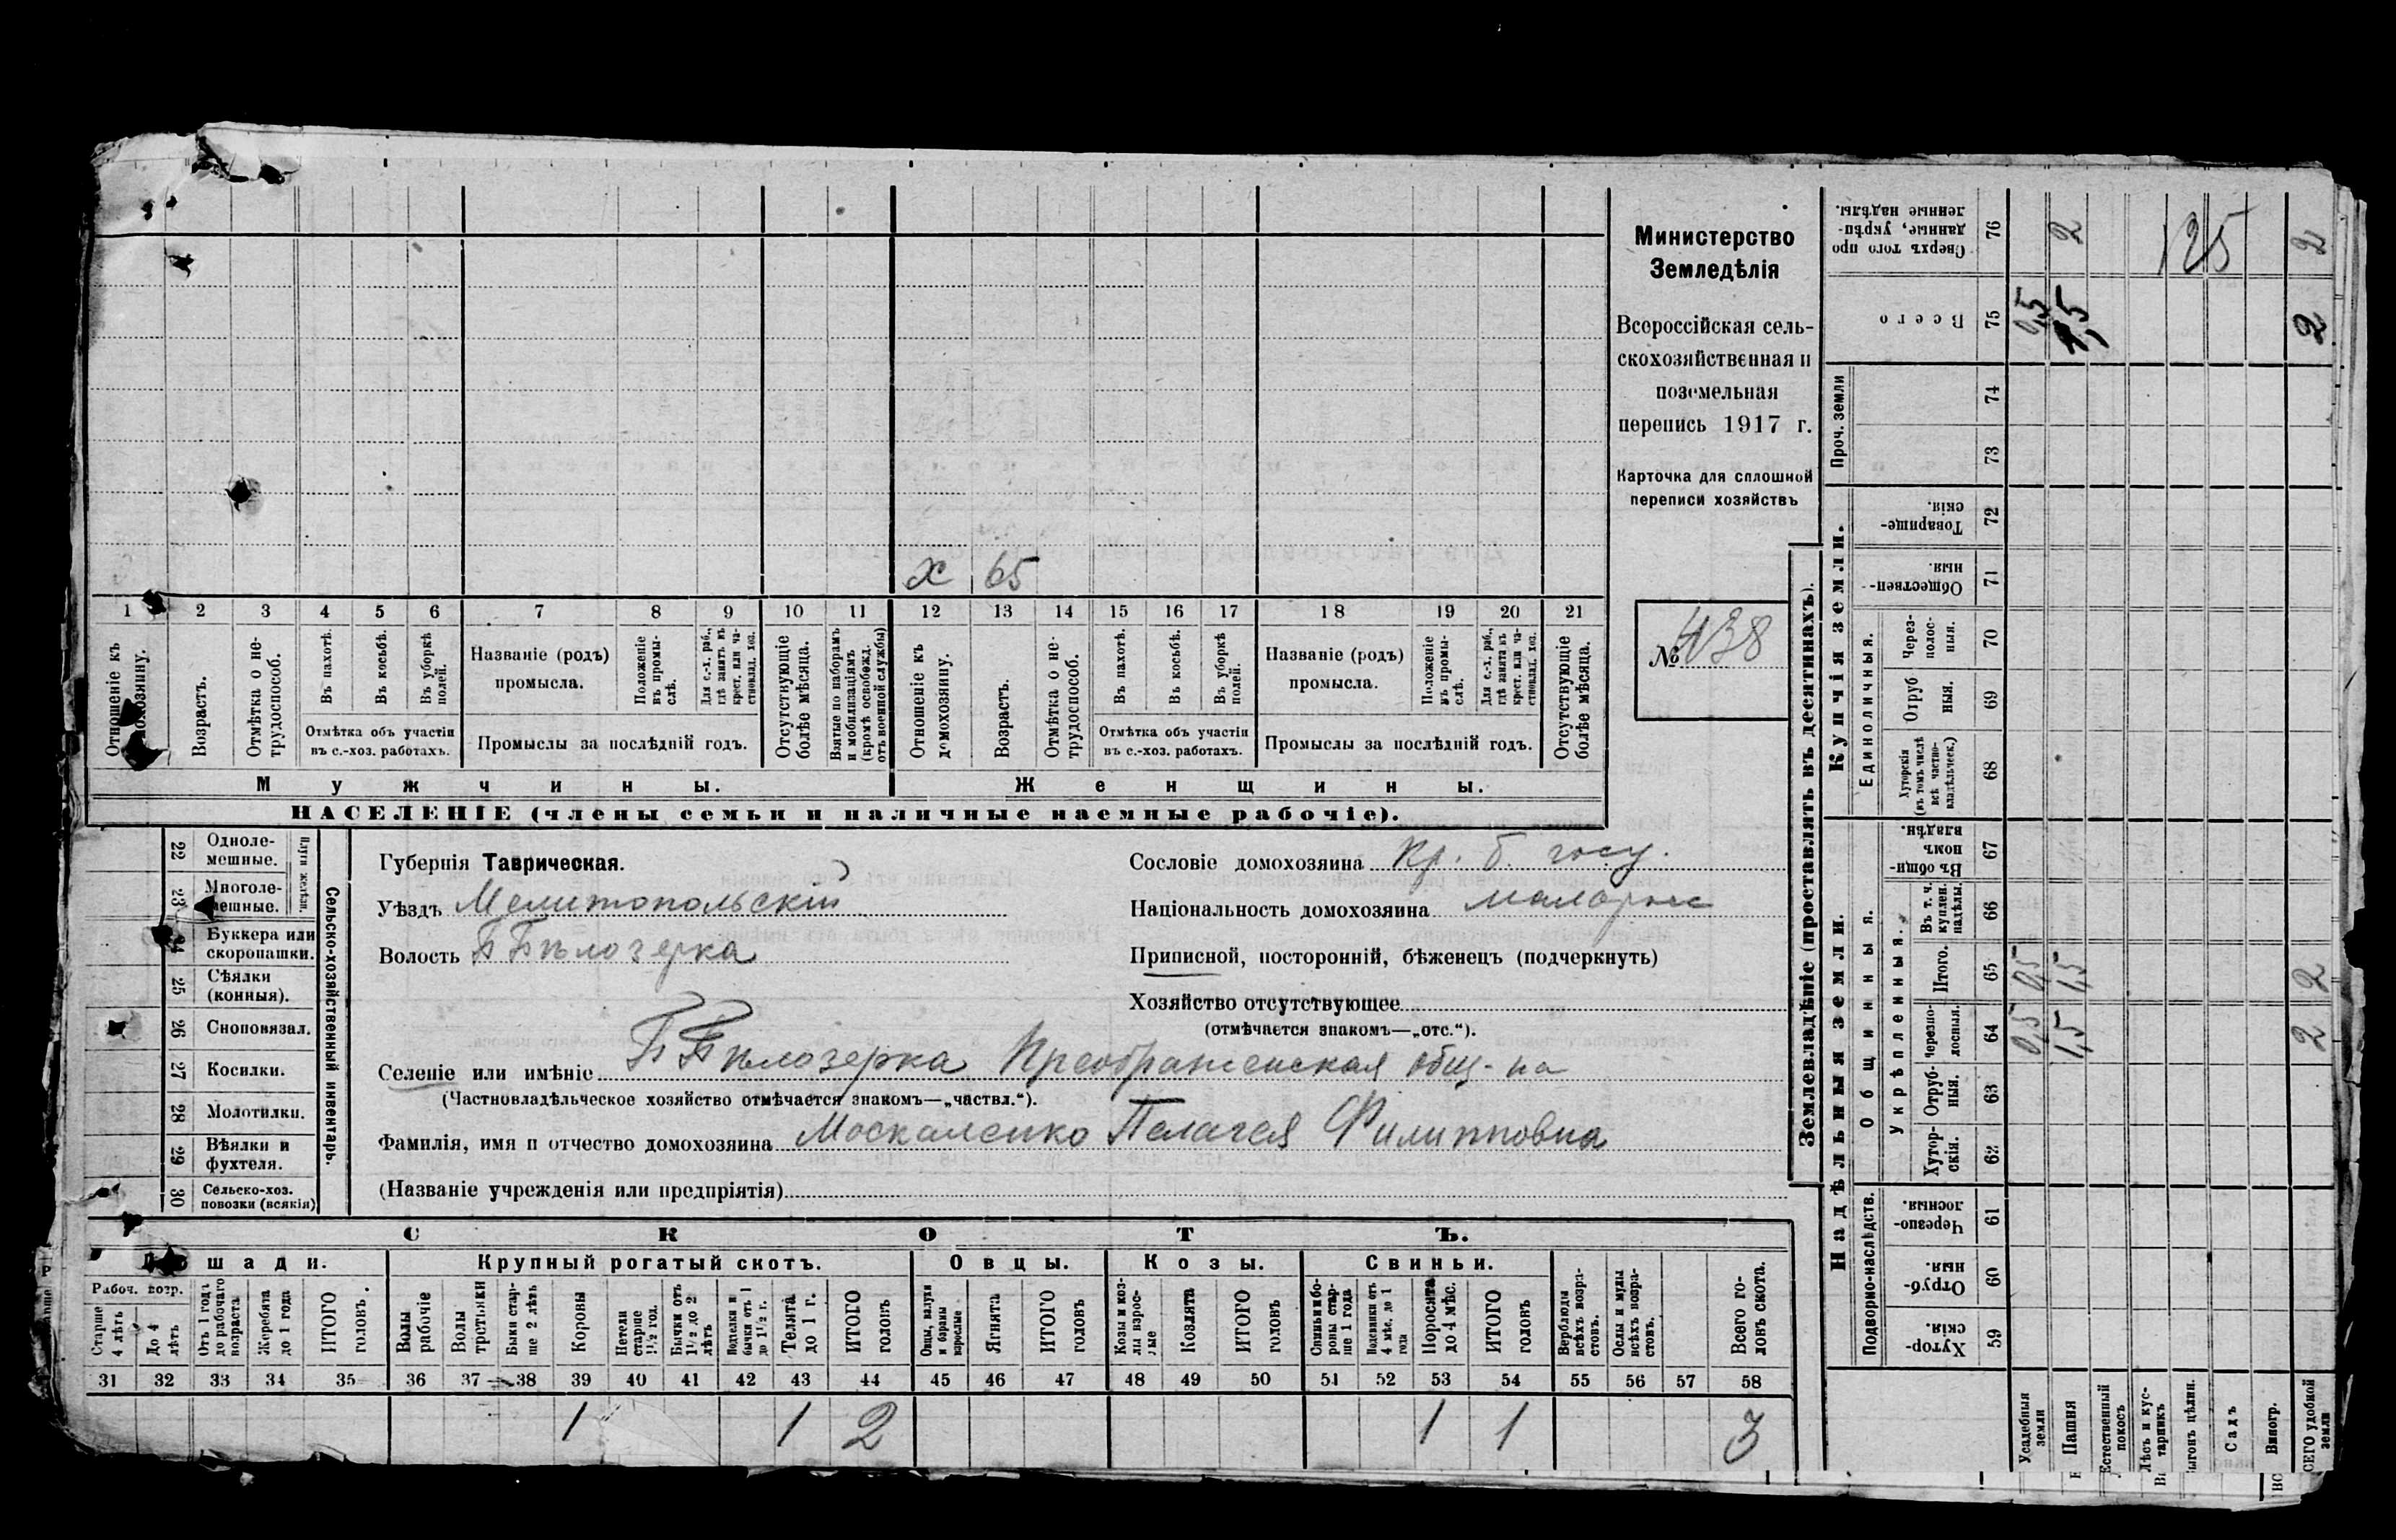 х 65
1 2 3 4 5 6 7 8 9 10 11 12 13 14 15 16 17 18 19 20 21
Отношеніе къ домохозяину.
Возрастъ.
Отмѣтка о нетрудоспособ.
Въ пахотѣ.
Въ косьбѣ.
Въ уборкѣ полей.
Отмѣтка объ участіи
въ с.-хоз. работахъ.
Названіе (родъ)
промысла.
Положеніе въ промыслѣ.
Для с.-х. раб., гдѣ занятъ въ крест. или частновлад. хоз.
Промыслы за послѣдній годъ.
Отсутствующіе болѣе мѣсяца.
Взятые по наборамъ и мобилизаціямъ (кромѣ освобожд. отъ военной службы)
Отношеніе къ домохозяину.
Возрастъ.
Отмѣтка о нетрудоспособ.
Въ пахотѣ.
Въ косьбѣ.
Въ уборкѣ полей.
Отмѣтка объ участіи
въ с.-хоз. работахъ.
Названіе (родъ)
промысла.
Положеніе въ промыслѣ.
Для с.-х. раб., гдѣ занята въ крест. или частновлад. хоз.
Промыслы за послѣдній годъ.
Отсутствующіе болѣе мѣсяца.
Мужчины. Женщины.
НАСЕЛЕНІЕ (члены семьи и наличные наемные рабочіе).
Министерство
Земледѣлія
Всероссійская сель-
скохозяйственная и
поземельная
перепись 1917 г.
Карточка для сплошной
переписи хозяйствъ
№ 438
22 Одноле-
мешные.
23 Многоле-
мешные.
Плуги желѣзн.
24 Буккера или
скоропашки.
25 Сѣялки
(конныя).
26 Сноповязал.
27 Косилки.
28 Молотилки.
29 Вѣялки и
фухтеля.
30 Сельско-хоз.
повозки (всякія)
Сельско-хозяйственный инвентарь.
Губернія Таврическая.
Уѣздъ Мелитопольскій
Волость Б Бѣлозерка
Сословіе домохозяина Кр. б. госу.
Національность домохозяина малоросс
Приписной, посторонній, бѣженецъ (подчеркнуть)
Хозяйство отсутствующее
(отмѣчается знакомъ—„отс.“).
Селеніе или имѣніе Б Бѣлозерка Преображенская общ-на
(Частновладѣльческое хозяйство отмѣчается знакомъ—„частвл.“).
Фамилія, имя и отчество домохозяина Москаленко Пелагея Филипповна
(Названіе учрежденія или предпріятія)
СКОТЪ.
Лошади. Крупный рогатый скотъ. Овцы. Козы. Свиньи.
Рабоч. возр.
Старше 4 лѣтъ
До 4 лѣтъ
Отъ 1 годъ до рабочаго возраста
Жеребята до 1 года
ИТОГО головъ.
Волы рабочіе
Волы третьяки
Быки старше 2 лѣтъ
Коровы
Нетели старше 1½ год.
Бычки отъ 1½ до 2 лѣтъ
Подтелки и бычки отъ 1 до 1½ г.
Телята до 1 г.
ИТОГО головъ
Овцы, валухи и бараны взрослые
Ягнята
ИТОГО головъ
Козы и козлы взрослые
Козлята
ИТОГО головъ
Свиньи и боровы старше 1 года
Подсвинки отъ 4 мѣс. до 1 года
Поросята до 4 мѣс.
ИТОГО головъ
Верблюды всѣхъ возрастовъ.
Ослы и мулы всѣхъ возрастовъ.
Всего головъ скота.
31 32 33 34 35 36 37 38 39 40 41 42 43 44 45 46 47 48 49 50 51 52 53 54 55 56 57 58
1 1 2 1 1 3
Землевладѣніе (проставлять въ десятинахъ).
Купчія земли.
Надѣльныя земли.
Сверхъ того проданные, укрѣпленные надѣлы. 76 2 125 2
Всего 75 0,5 1,5 2
Проч. земли
74
73
Товарищескія. 72
Общественныя. 71
Единоличныя.
Черезполосныя. 70
Отрубныя. 69
Хуторскія (въ томъ числѣ всѣ частновладѣльческ.) 68
Общинныя.
Въ общинномъ владѣн. 67
Укрѣпленныя.
Въ т. ч. куплен. надѣлы. 66
Итого. 65 0,5 1,5 2
Черезполосныя. 64 0,5 1,5 2
Отрубныя. 63
Хуторскія. 62
Подворно-наслѣдств.
Черезполосныя. 61
Отрубныя. 60
Хуторскія. 59
Усадебныя земли
Пашня
Естественный покосъ
Лѣсъ и кустарникъ
Выгонъ цѣлин.
Садъ
Виногр.
ВСЕГО удобной земли